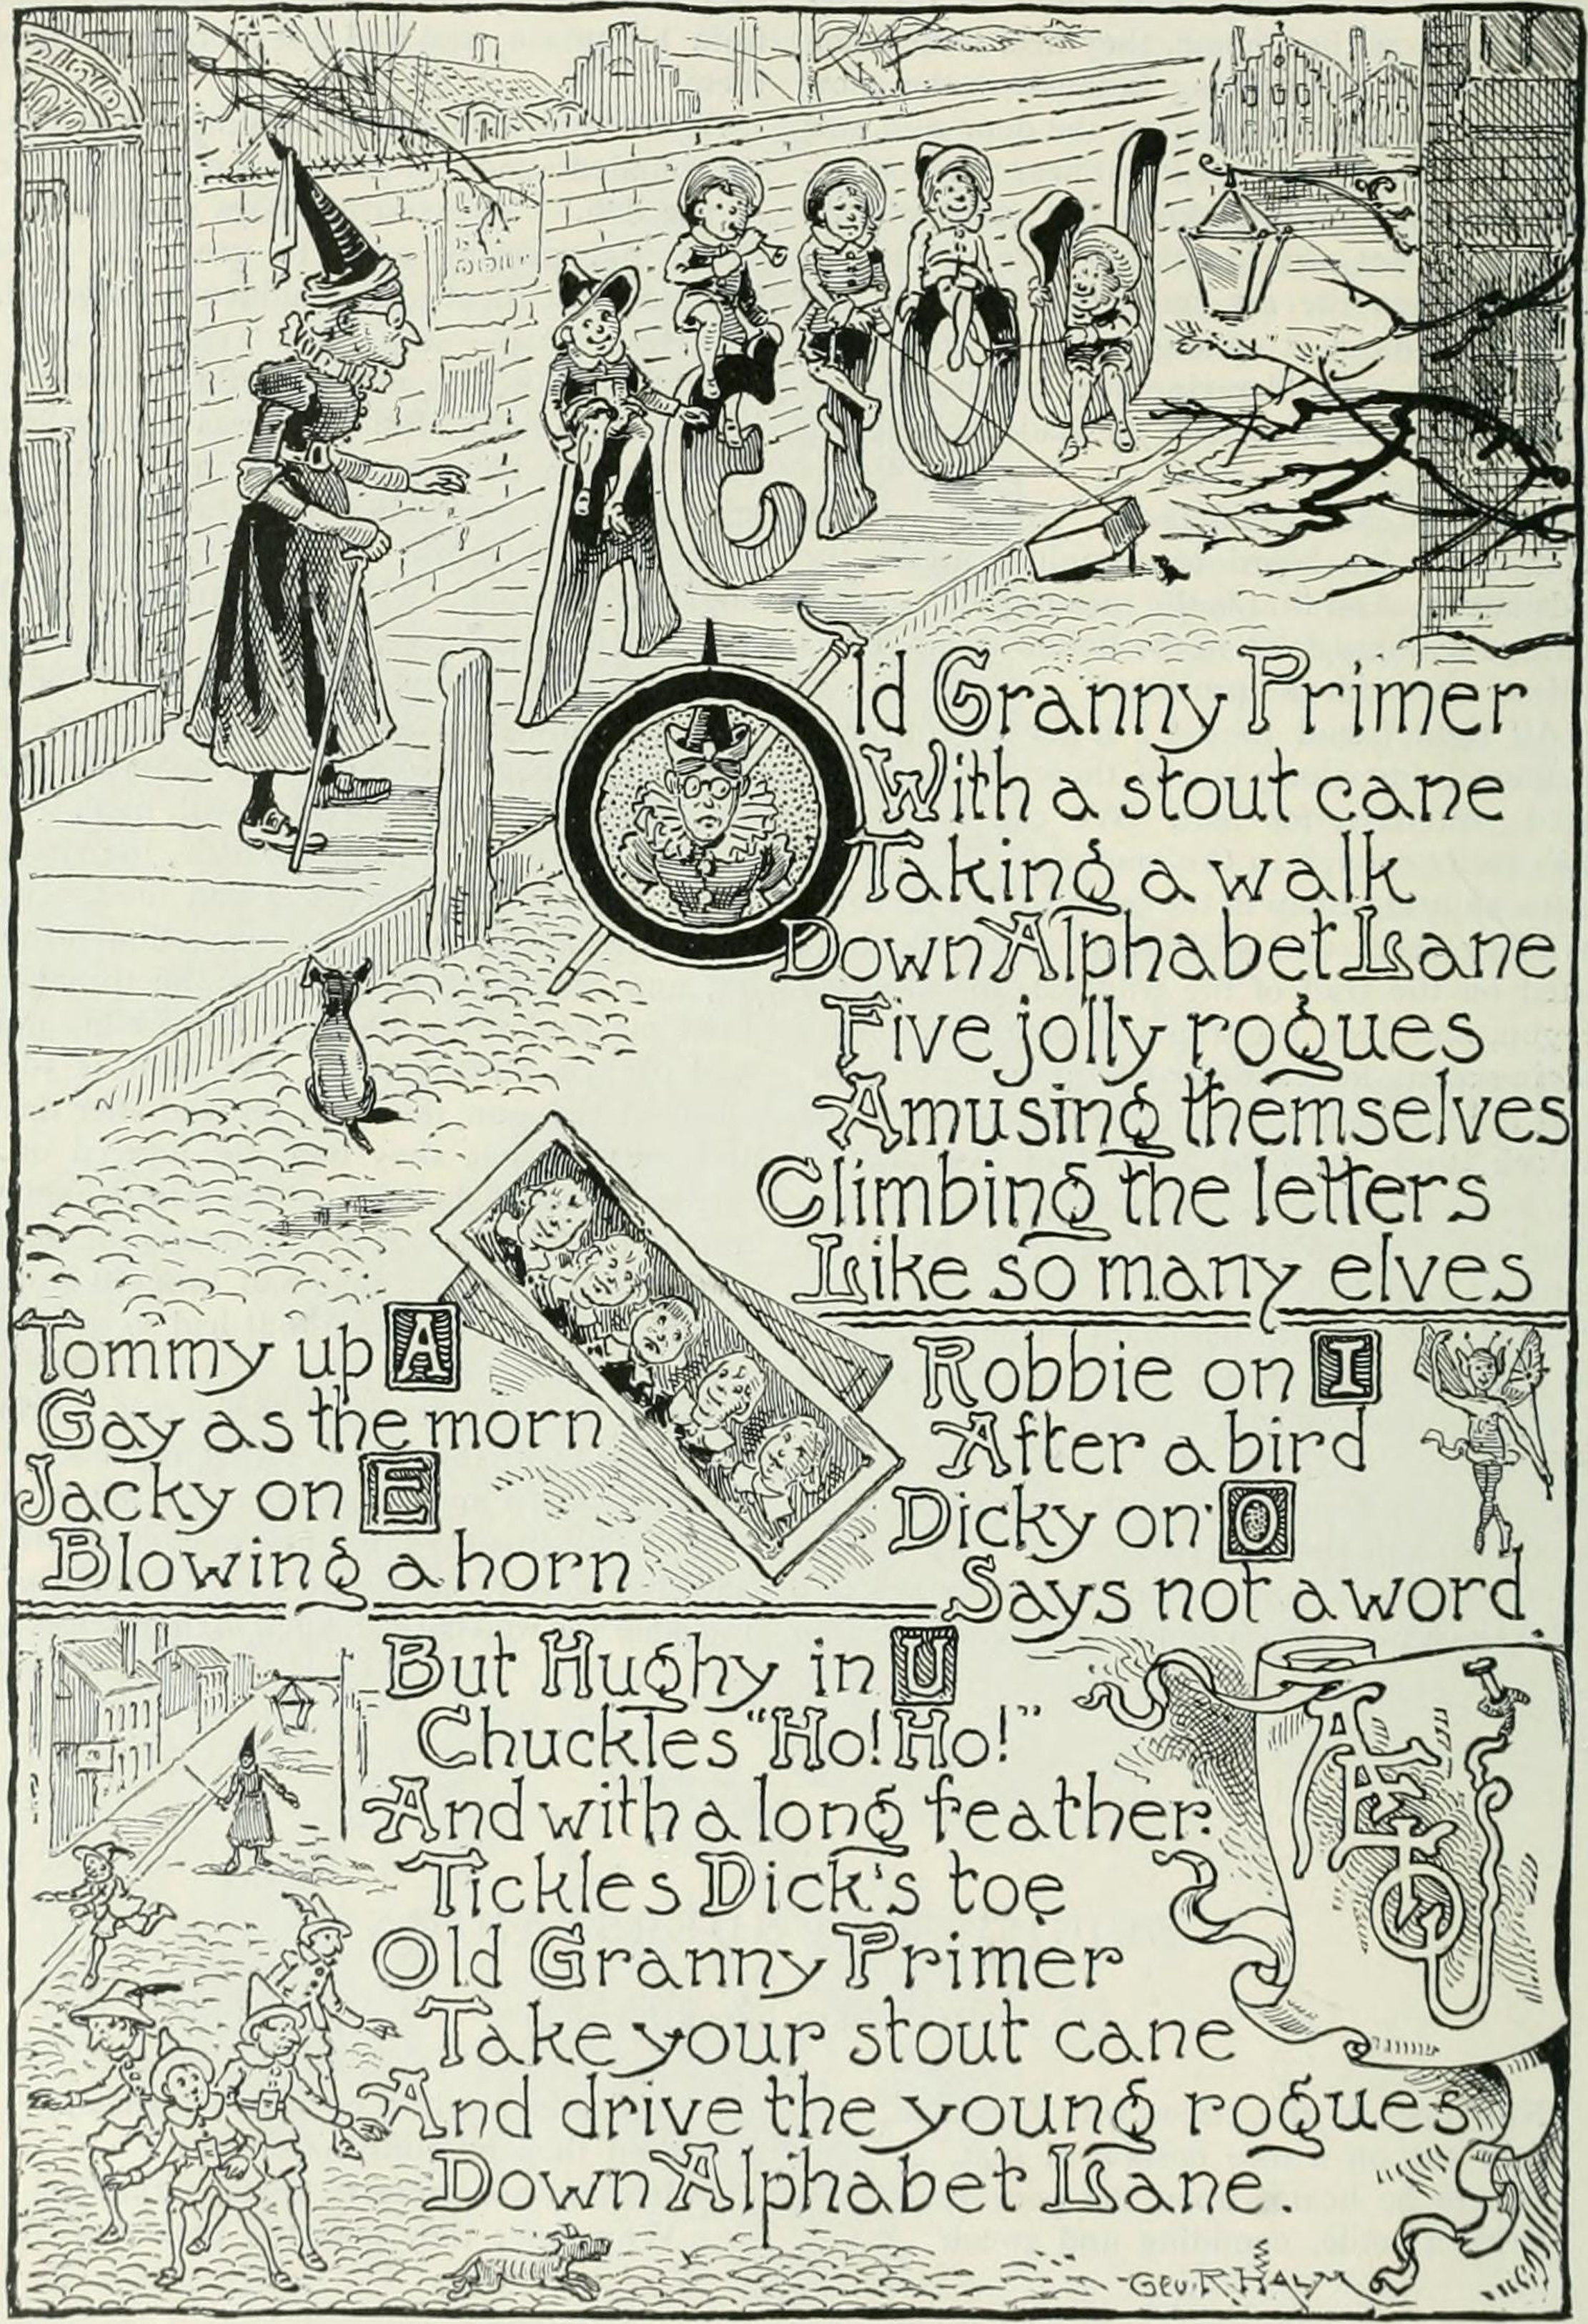 A E I O U
Old Granny Primer
With a stout cane
Taking a walk
Down Alphabet Lane
Five jolly rogues
Amusing themselves
Climbing the letters
Like so many elves
Tommy up A
Gay as the morn
Jacky on E
Blowing a horn
Robbie on I
After a bird
Dicky on O
Says not a word.
But Hughy in U
Chuckles "Ho! Ho!"
And with a long feather
Tickles Dick's toe
Old Granny Primer
Take your stout cane
And drive the young rogues
Down Alphabet Lane.
A E I O U
Geo. R. Halm